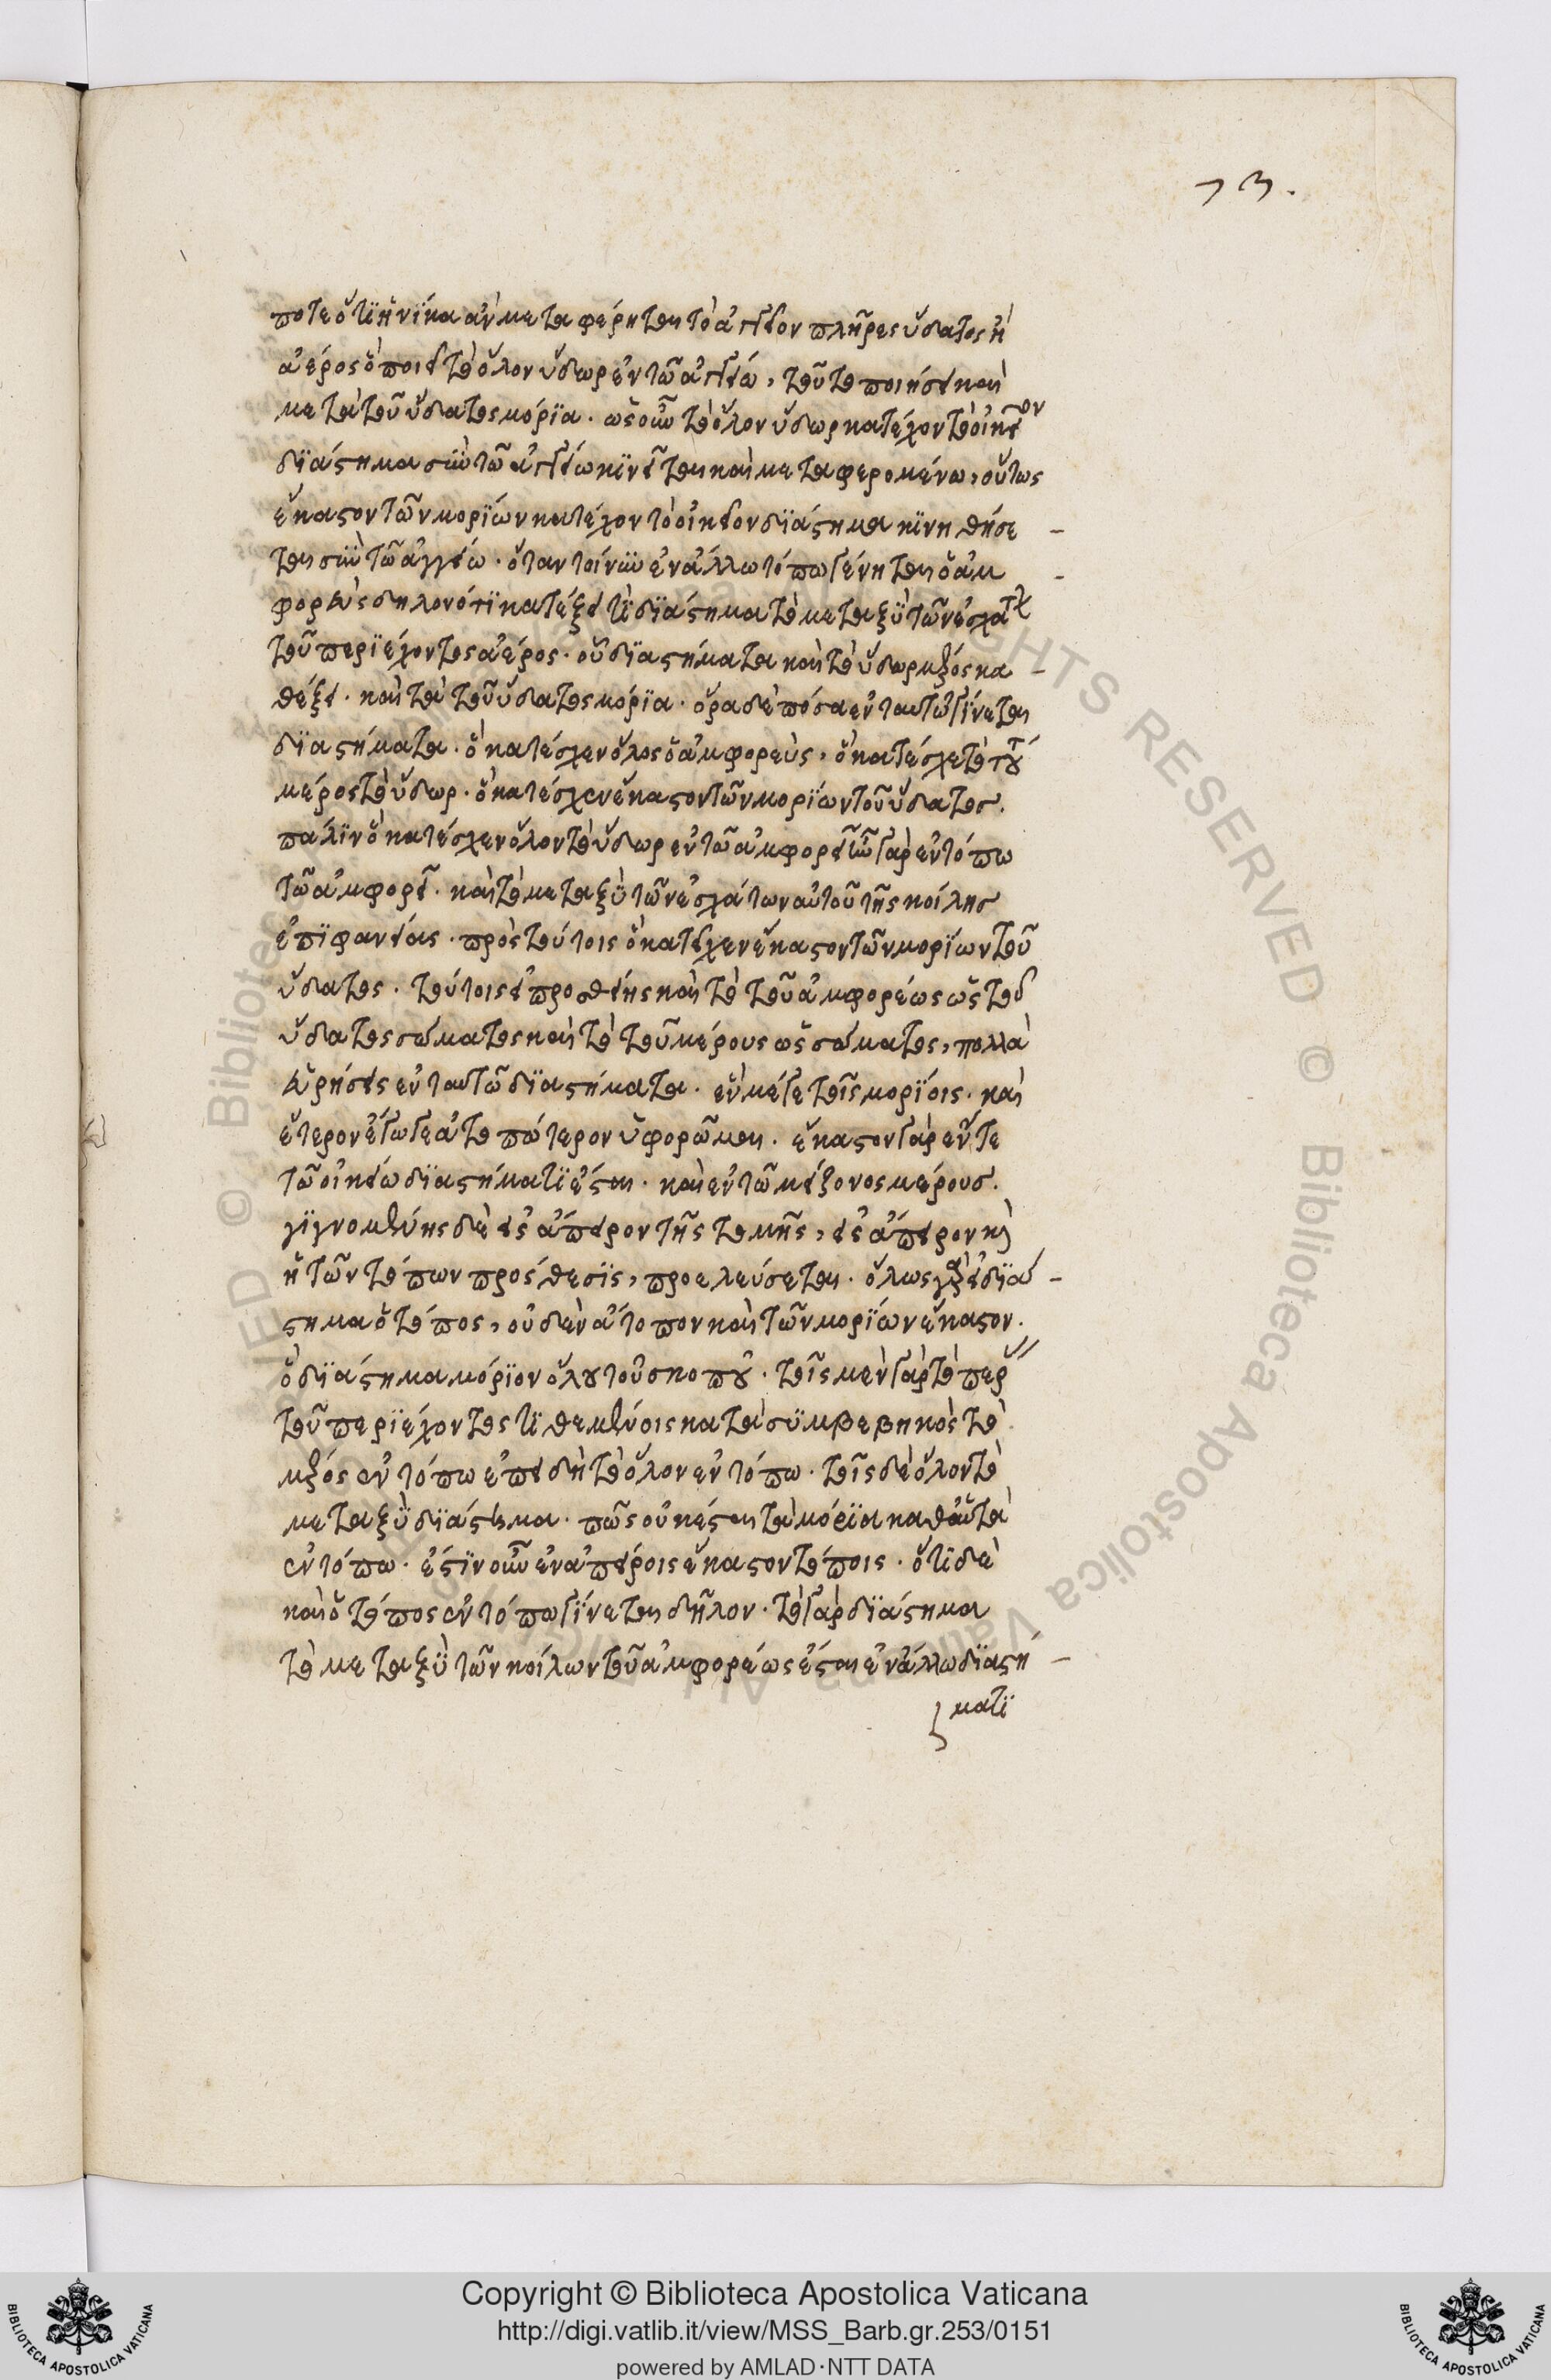 73.
ποτε ὅτι ἡνίκα ἂν μεταφέρηται τὸ ἀγγεῖον πλῆρες ὕδατος ἢ
ἀέρος ὃ ποιεῖ τὸ ὅλον ὕδωρ ἐν τῶ ἀγγείω, τοῦτο ποιήσει καὶ
μετὰ τοῦ ὕδατος μόρια. ὡς οὖν τὸ ὅλον ὕδωρ κατέχον τὸ οἰκεῖον
διάστημα σὺν τῶ ἀγγείω κινεῖται καὶ μεταφερομένω, οὕτως
ἕκαστον τῶν μορίων κατέχον τὸ οἰκεῖον διάστημα κινηθήσε-
ται σὺν τῶ ἀγγείω. ὅταν τοίνυν ἐν ἄλλω τόπω γένηται ὁ ἀμ-
φορεὺς δηλονότι καθέξει τι διάστημα τὸ μεταξὺ τῶν ἐσχάτων
τοῦ περιέχοντος ἀέρος. οὗ διαστήματα καὶ τὸ ὕδωρ μέρος κα-
θέξει. καὶ τὰ τοῦ ὕδατος μόρια. ὅρα δὲ πόσα ἐν ταυτῶ γίνεται
διαστήματα. ὃ κατέσχεν ὅλος ὁ ἀμφορεὺς, ὃ κατέσχε τὸ τού
μέρος τὸ ὕδωρ. ὃ κατέσχεν ἕκαστον τῶν μορίων τοῦ ὕδατος.
πάλιν ὃ κατέσχεν ὅλον τὸ ὕδωρ ἐν τῶ ἀμφορεῖ ὧ γὰρ ἐν τόπω
τῶ ἀμφορεῖ. καὶ τὸ μεταξὺ τῶν ἐσχάτων αὐτοῦ τῆς κοίλης
ἐπιφανείας. πρὸς τούτοις ὃ κατεῖχεν ἕκαστον τῶν μορίων τοῦ
ὕδατος. τούτοις εἰ προσθείης καὶ τὸ τοῦ ἀμφορέως ὡς τοῦ
ὕδατος σώματος καὶ τὸ τοῦ μέρους ὡς σώματος, πολλὰ
εὑρήσεις ἐν ταυτῶ διαστήματα. ἐν μέγε τοῖς μορίοις. καὶ
ἕτερον ἔγωγε ἀτοπώτερον ὑφορῶμαι. ἕκαστον γὰρ ἔν τε
τῶ οἰκείω διαστήματι ἔσται. καὶ ἐν τῶ μείζονος μέρους.
γιγνομένης δὲ εἰς ἄπειρον τῆς τομῆς, εἰς ἄπειρον καὶ
ἡ τῶν τόπων πρόσθεσις, προελεύσεται. ὅλως γὰρ εἰ διά-
στημα ὁ τόπος, οὐδὲν ἄτοπον καὶ τῶν μορίων ἕκαστον.
ὃ διάστημα μόριον ὅλου τοῦ σκοποῦ. τοῖς μὲν γὰρ τὸ πέρας
τοῦ περιέχοντος τιθεμένοις κατὰ συμβεβηκὸς τὸ
μέρος ἐν τόπω ἐπειδὴ τὸ ὅλον ἐν τόπω. τοῖς δὲ ὅλον τὸ
μεταξὺ διάστημα. πῶς οὐκ ἔσται τὰ μόρια καθ' αὑτὰ
ἐν τόπω. ἔστιν οὖν ἐν ἀπείροις ἕκαστον τόποις. ὅτι δὲ
καὶ ὁ τόπος ἐν τόπω γίνεται δῆλον. τὸ γὰρ διάστημα
τὸ μεταξὺ τῶν κοίλων τοῦ ἀμφορέως ἔσται ἐν ἄλλω διαστή-
ματι
Copyright © Biblioteca Apostolica Vaticana
http://digi.vatlib.it/view/MSS_Barb.gr.253/0151
powered by AMLAD·NTT DATA
BIBLIOTECA APOSTOLICA VATICANA
BIBLIOTECA APOSTOLICA VATICANA